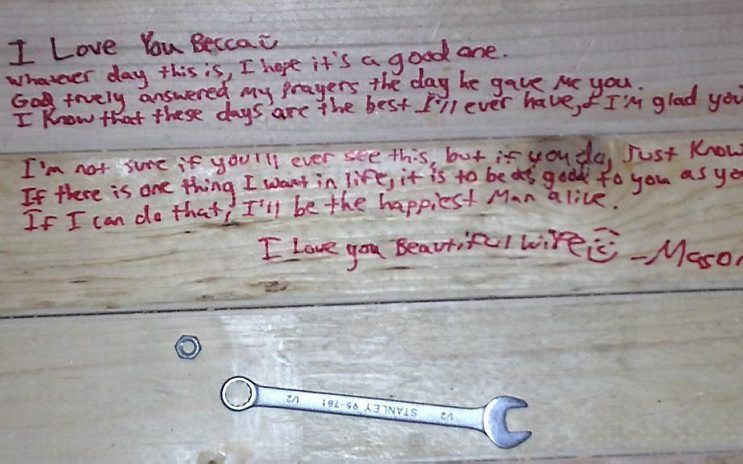 I Love You Becca
whatever day this is, I hope it's a good one.
God truely answered my prayers the day he gave me you.
I know that these days are the best I'll ever have, & I'm glad you
I'm not sure if you'll ever see this, but if you do, Just Know
If there is one thing I want in life, it is to be as good to you as yo
If I can do that, I'll be the happiest Man alive.
I Love you Beautiful Wife -Mason
1/2 STANLEY 95-781 1/2